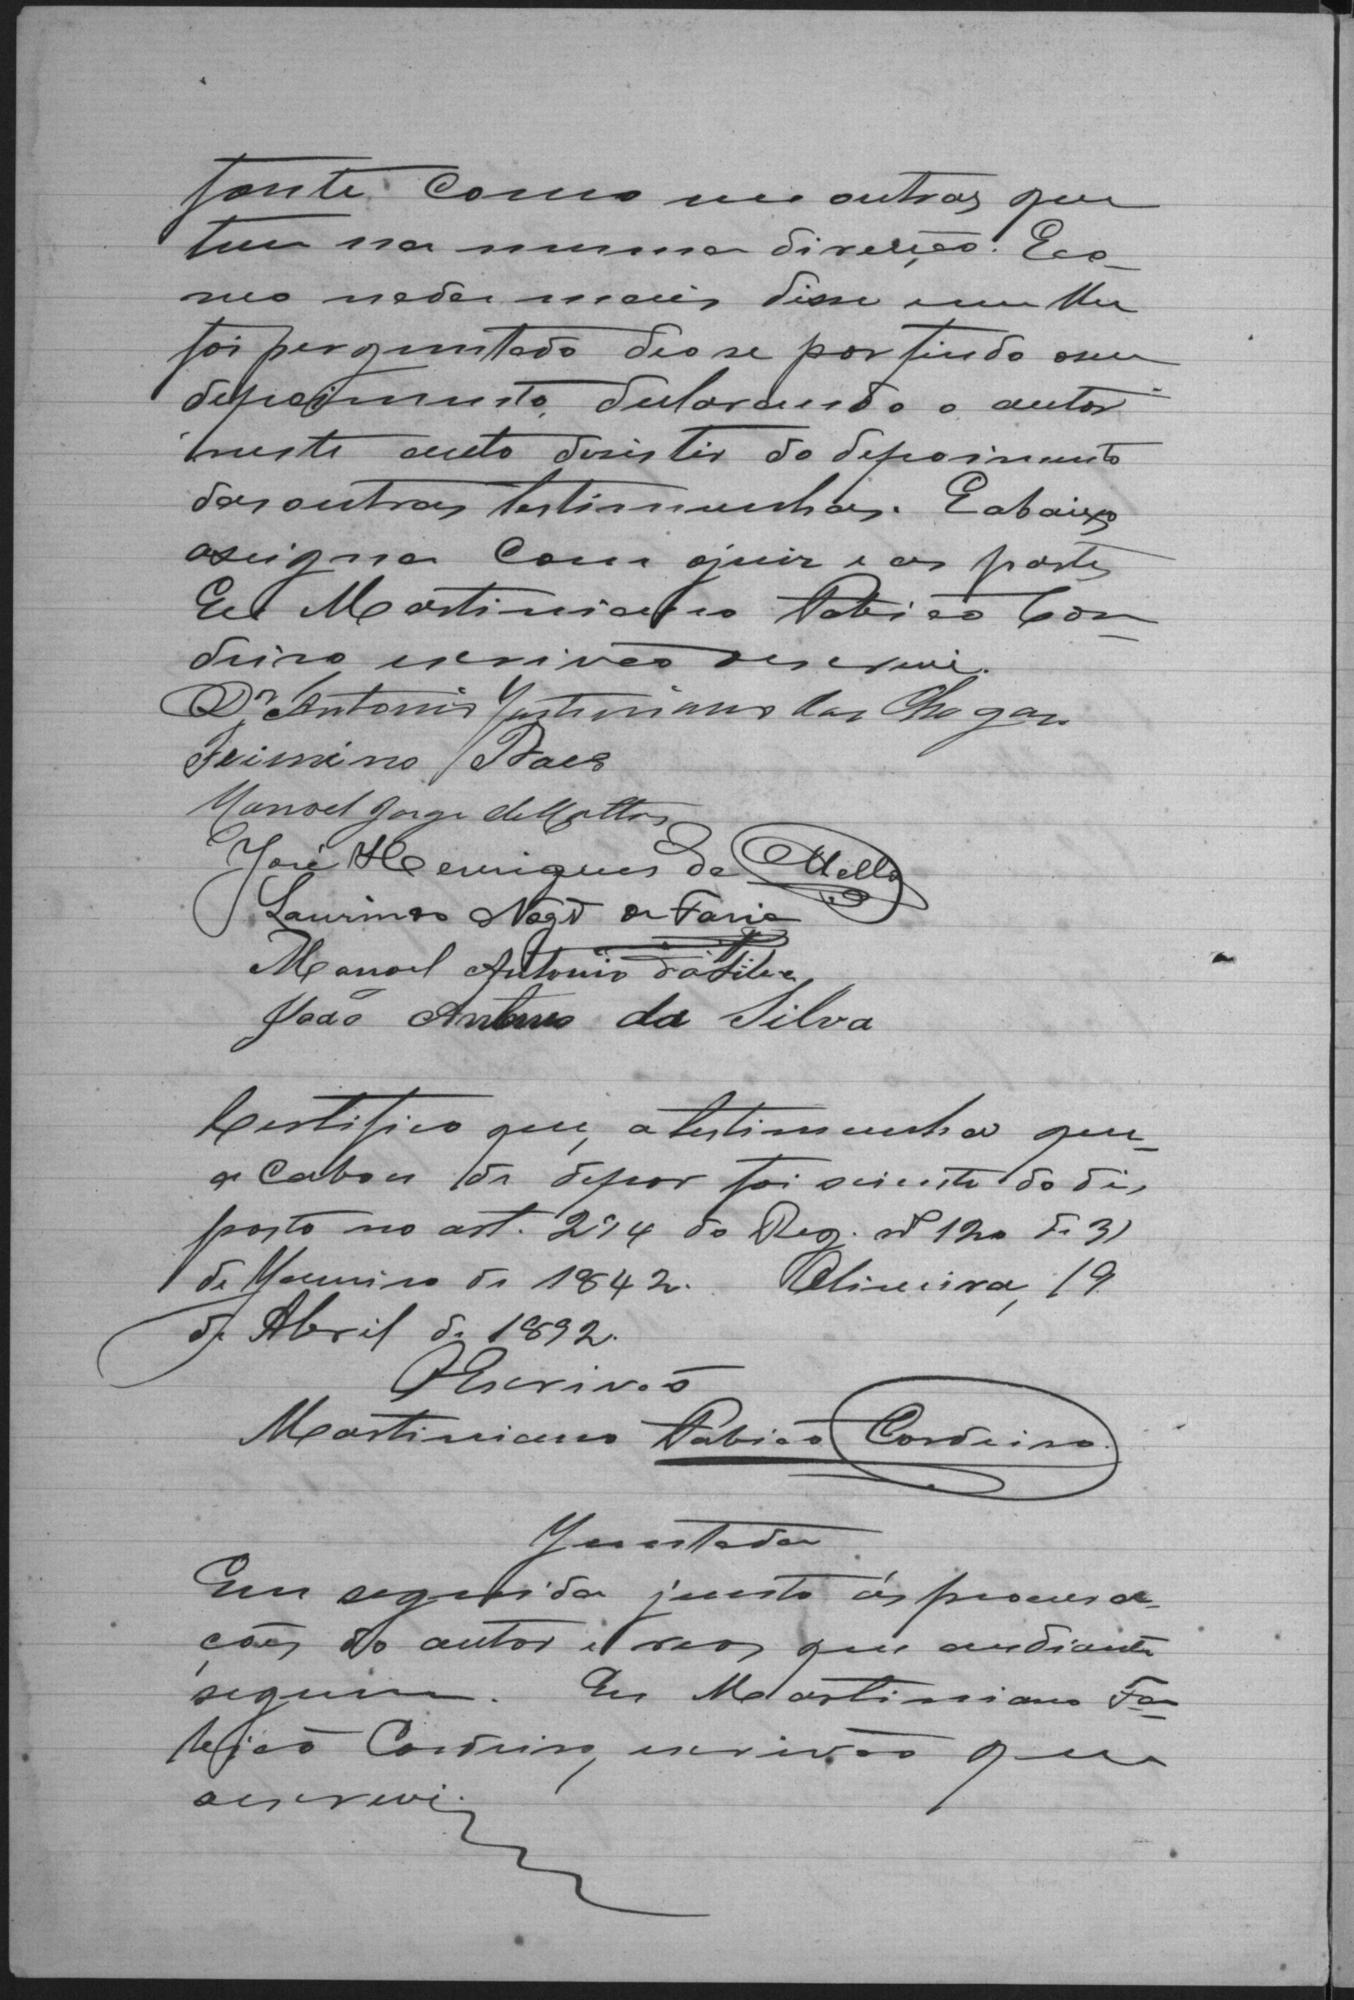 fonte como nas outras que
tem na mesma direcção. E co-
mo nada mais disse nem lhe
foi perguntado deo se por findo o seu
depoimento, declarando o autor
neste acto desistir do depoimento
das outras testimunhas. E abaixo
assigna com o juiz e as partes
Eu Martiniano Fabião Cor-
deiro escrivão o escrevi.
Dr. Antonio Justiniano das Chagas
Firmino Paes
Manoel Jorge de Mattos
José Henriques de Mello
Laurindo Nogr. de Faria
Manoel Antonio da Silva
João Antonio da Silva
Certifico que, a testimunha que
acabou de depor foi sciente do dis
posto no art. 294 do Reg. nº 120 de 31
de Janeiro de 1842. Oliveira, 19
de Abril de 1892.
O Escrivão
Martiniano Fabião Cordeiro
Juntada
Em seguida junto ás procura-
ções do autor e reos que andiante
seguem. Eu Martiniano Fa-
bião Cordeiro, escrivão que
o escrevi.